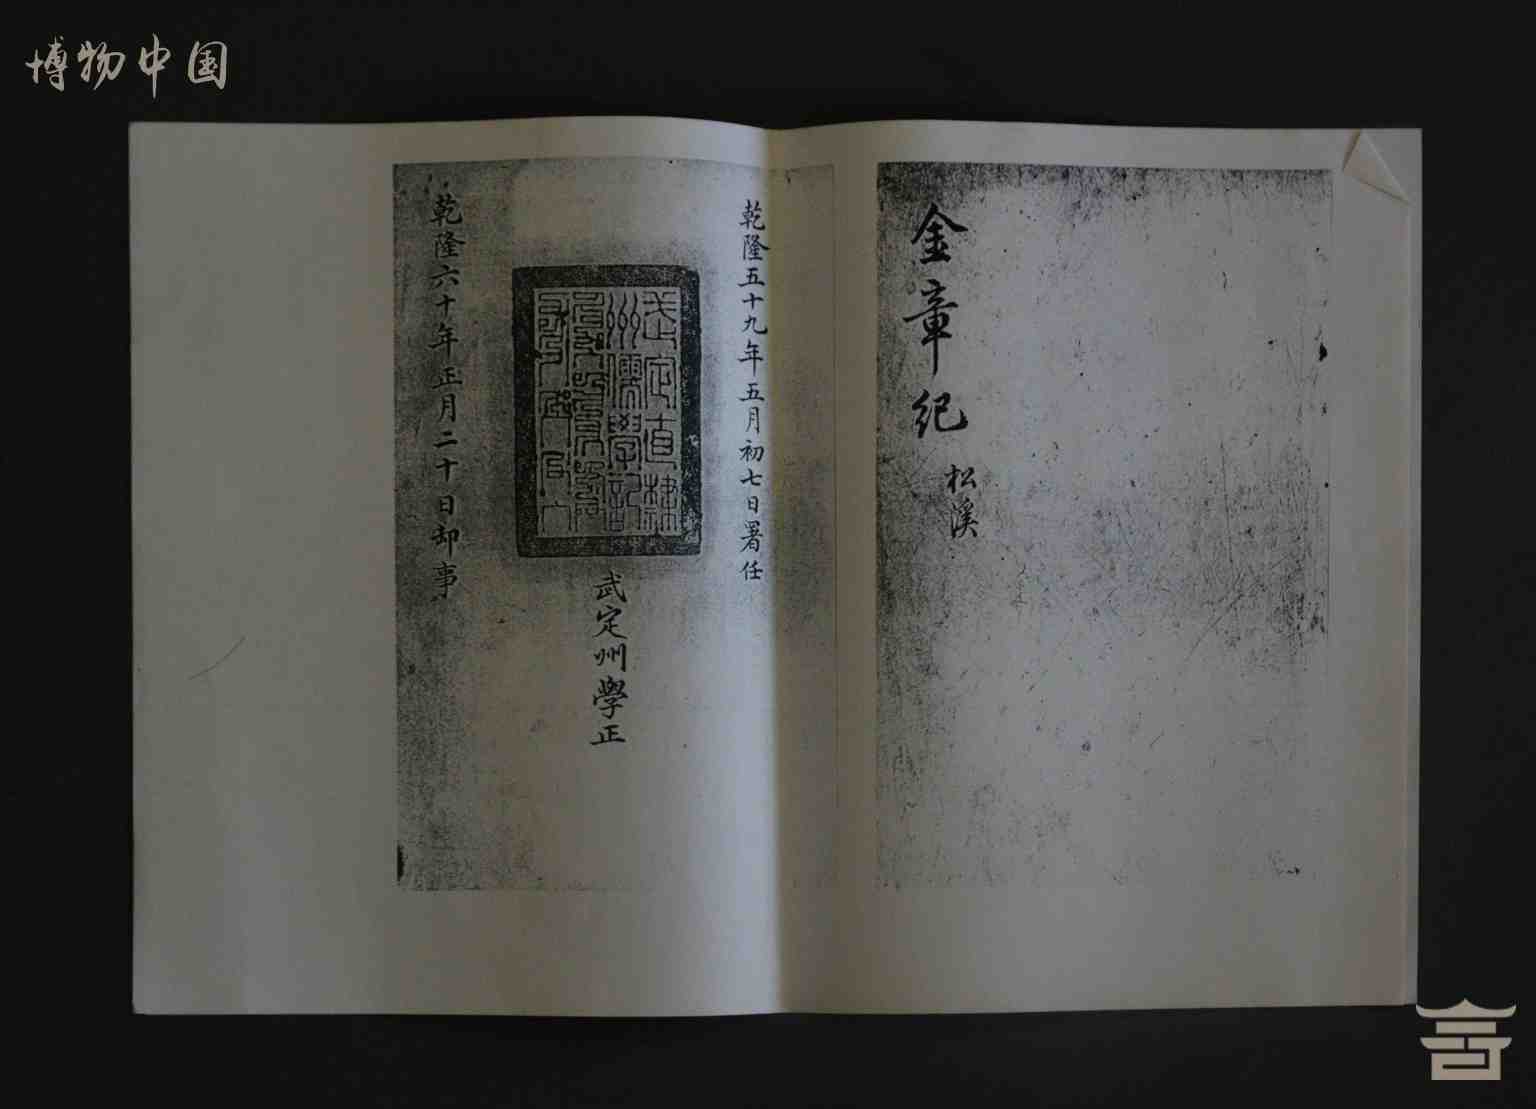 博物中国
金章纪
松溪
乾隆五十九年五月初七日署任
武定直隸
州儒學記
武定州學正
乾隆六十年正月二十日卸事